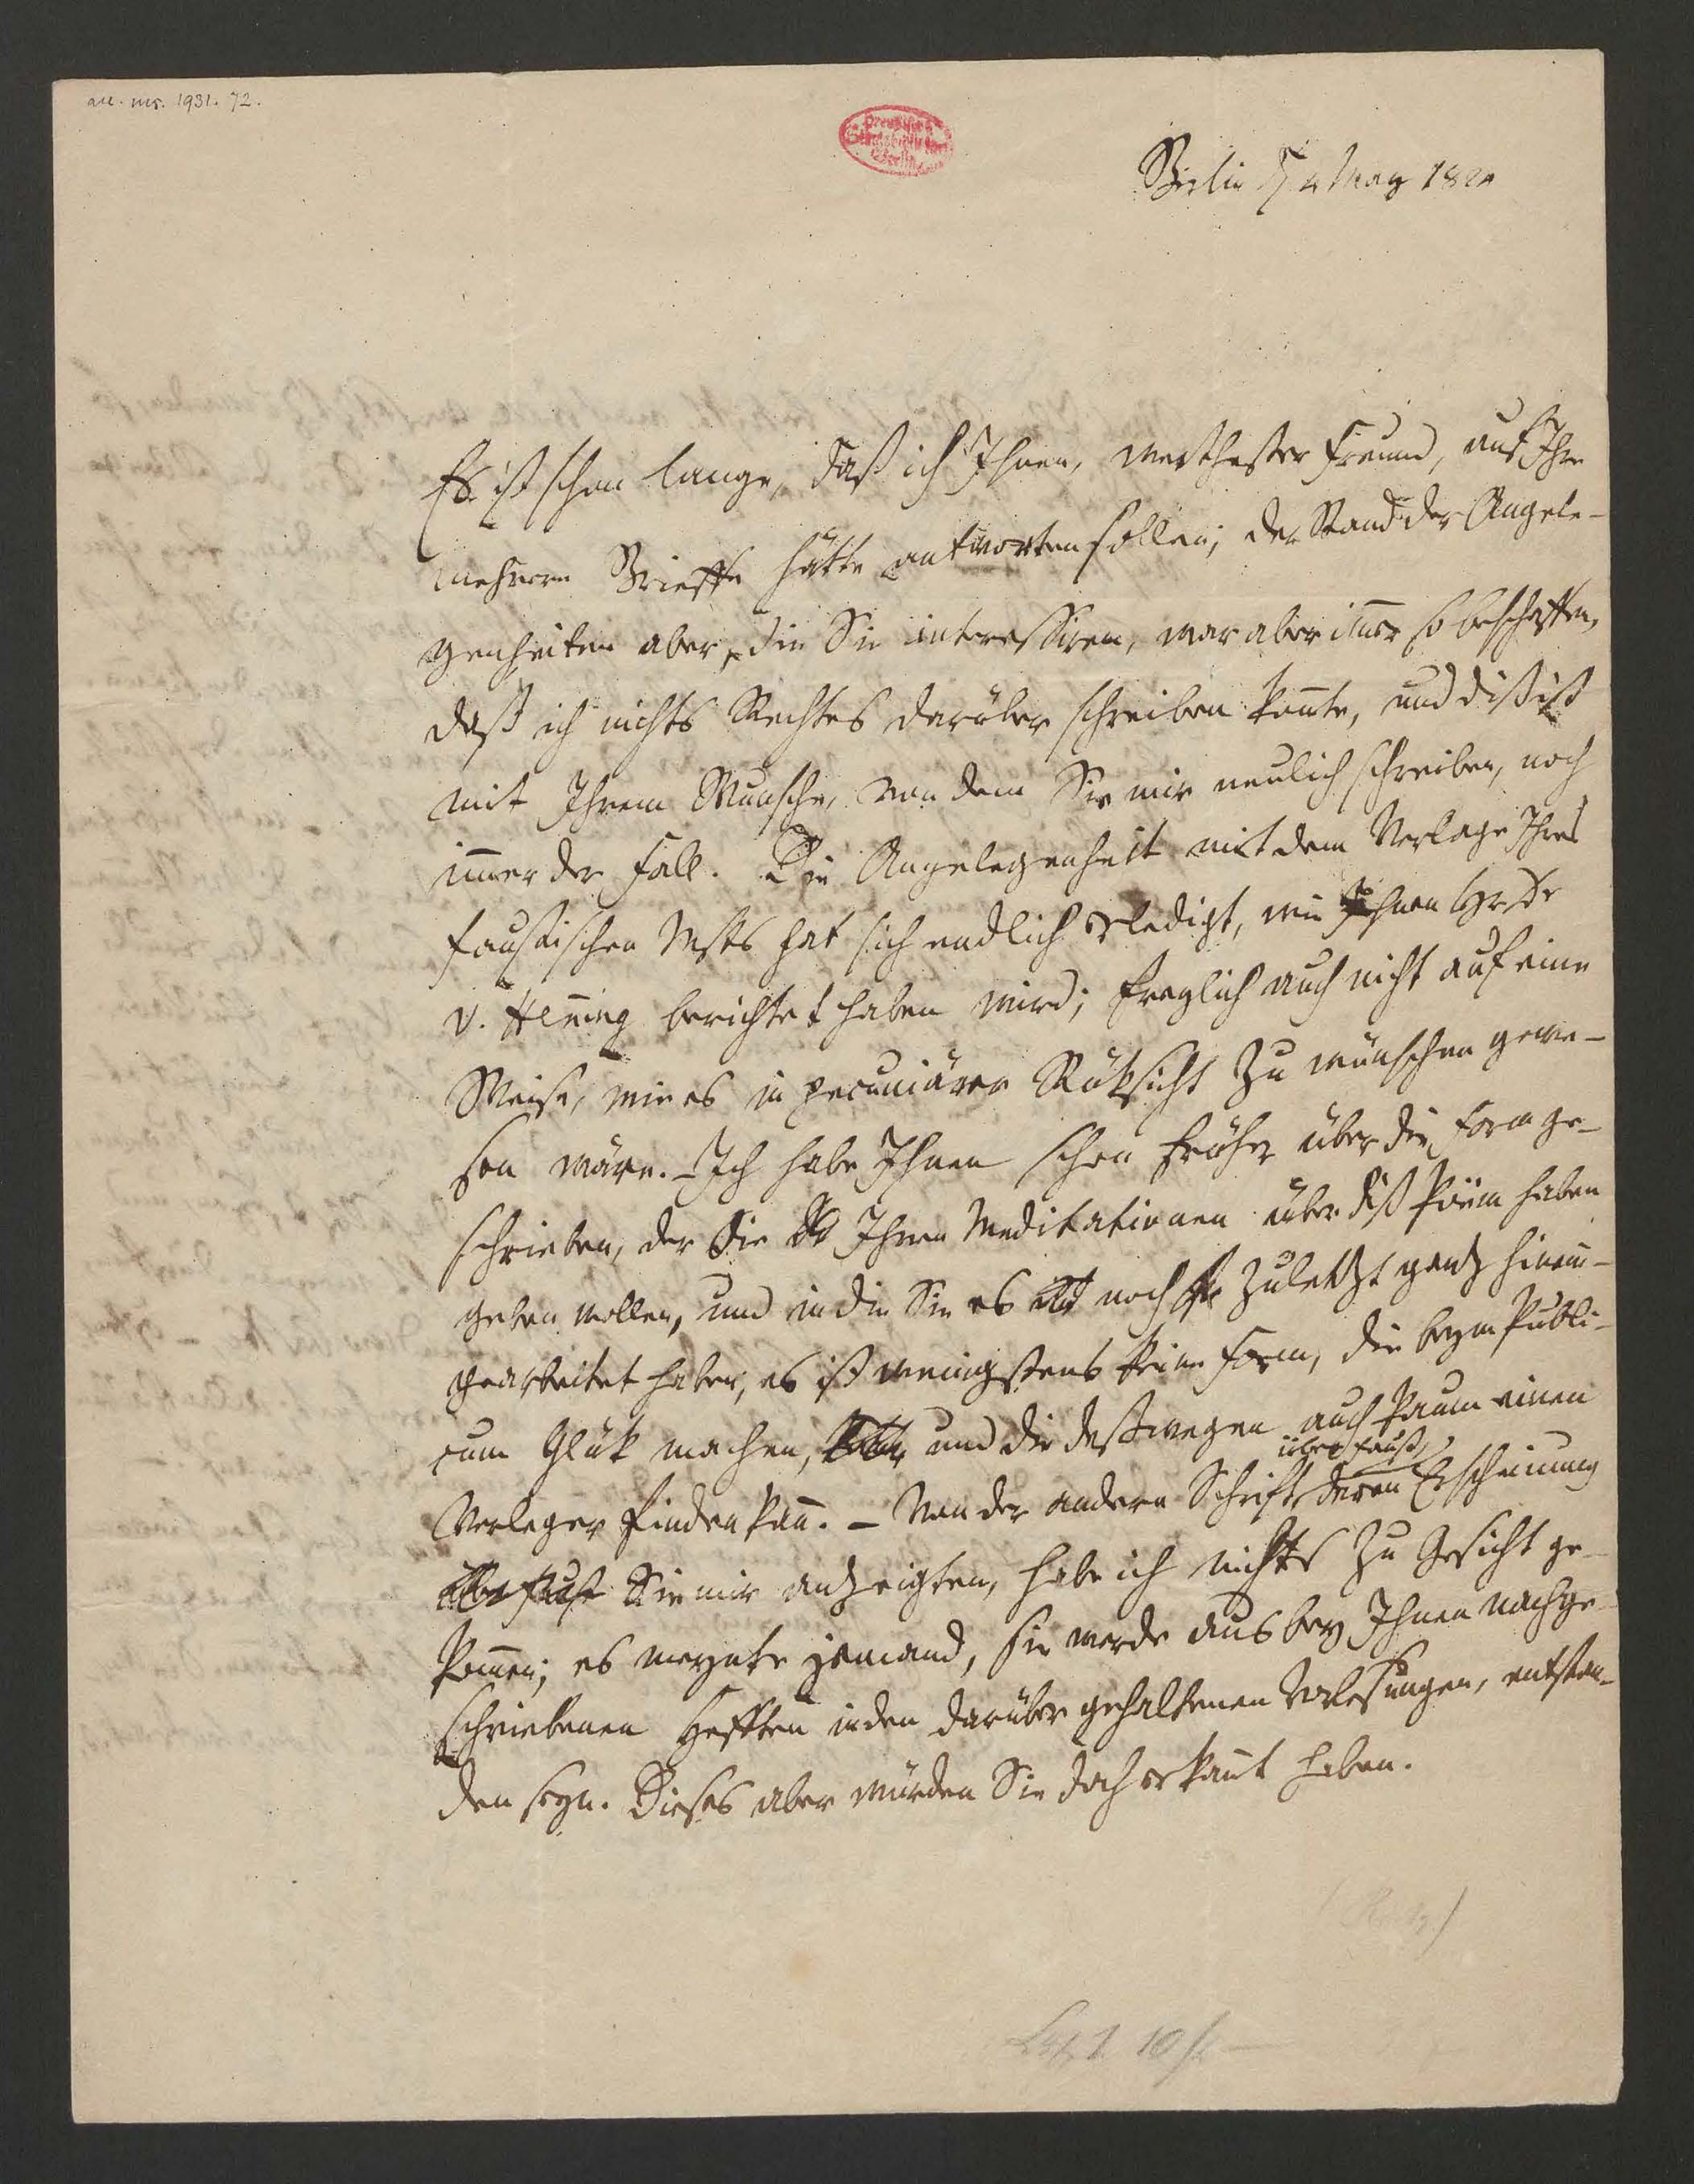 acc. ms. 1931. 72.
Preußische
Staatsbibliothek
Berlin
Berlin d 4 May 1824
Es ist schon lange, daß ich Ihnen, werthester Freund, auf Ihre
mehrern Brieffe hätte antworten sollen; der Stand der Angele-
genheiten aber, die Sie interessiren, war aber im̅er so beschaffen,
daß ich nichts Rechtes darüber schreiben kon̅te, und diß ist
mit Ihrem Wunsche, von dem Sie mir neulich schreiben, noch
im̅er der Fall. Die Angelegenheit mit dem Verlage Ihres
faustischen Msts hat sich endlich erledigt, wie Ihnen Hr Dr
v. Hen̅ing berichtet haben wird; freylich auch nicht auf eine
Weise, wie es in pecuniärer Rüksicht zu wünschen gewe-
sen wäre. – Ich habe Ihnen schon früher über die Form ge-
schrieben, der Sie Ihren Meditationen über diß Poëm haben
geben wollen, und in die Sie es noch zuletzt ganz hinein-
gearbeitet haben; es ist wenigstens keine Form, die beym Publi-
cum Glük machen, und die deßwegen auch kaum einen
Verleger finden kan̅. – Von der andern Schrift über Faust, deren Erscheinung
Sie mir anzeigten, habe ich nichts zu Gesicht ge-
kom̅en; es meynte jemand, sie werde aus bey Ihnen nachge-
schriebenen Hefften in den darüber gehaltenen Vorlesungen, entstan-
den seyn. Dieses aber würden Sie doch erkan̅t haben.